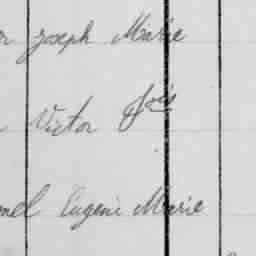 Joseph Marie
Victor Fois
mel Eugene Marie